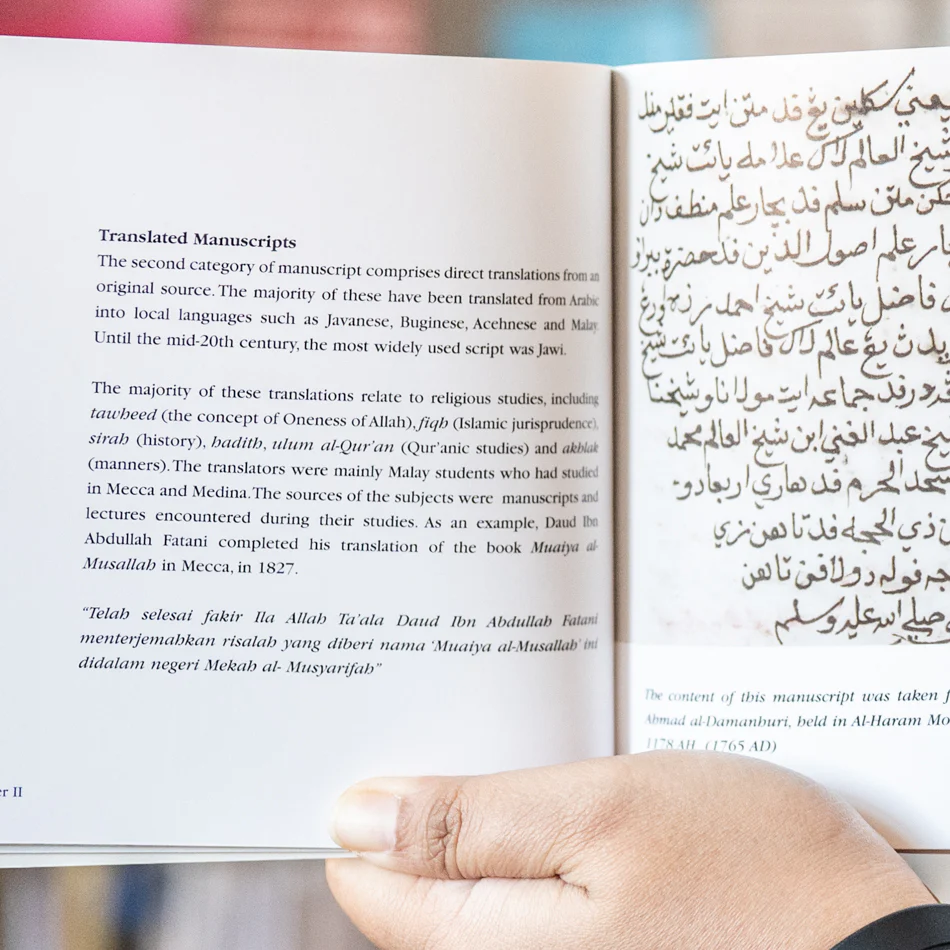 Translated Manuscripts
The second category of manuscript comprises direct translations from an
original source. The majority of these have been translated from Arabic
into local languages such as Javanese, Buginese, Acehnese and Malay.
Until the mid-20th century, the most widely used script was Jawi.
The majority of these translations relate to religious studies, including
tawheed (the concept of Oneness of Allah), fiqh (Islamic jurisprudence),
sirah (history), hadith, ulum al-Qur'an (Qur'anic studies) and akhlak
(manners). The translators were mainly Malay students who had studied
in Mecca and Medina. The sources of the subjects were manuscripts and
lectures encountered during their studies. As an example, Daud Ibn
Abdullah Fatani completed his translation of the book Muaiya al-
Musallah in Mecca, in 1827.
"Telah selesai fakir Ila Allah Ta'ala Daud Ibn Abdullah Fatani
menterjemahkan risalah yang diberi nama 'Muaiya al-Musallah' ini
didalam negeri Mekah al- Musyarifah"
er II
يعني سكلين يڠ
شيخ العالم لاڬ علامه يائت شيخ
متن سلم فد بچار علم منطق دان
علم اصول الدين فد حضرة
فاضل يائت شيخ احمد
يڠ عالم لاڬ فاضل يائت شيخ
جماعه ايت مولانا وشيخنا
عبد الغني ابن شيخ العالم محمد
الحرم فد هاري اربعا دو
ذي الحجه فد تاهن
تاهن
صلي الله عليه وسلم
The content of this manuscript was taken f
Ahmad al-Damanhuri, held in Al-Haram Mo
1178 AH (1765 AD)